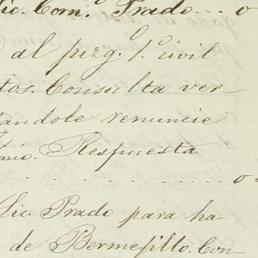 Lic. Com.º Prado... o
al juzg.º 1.º civil
tos. Consulta ver
andole renuncie
nio. Respuesta
o
Lic. Prado para ha
de Bermejillo. Con-